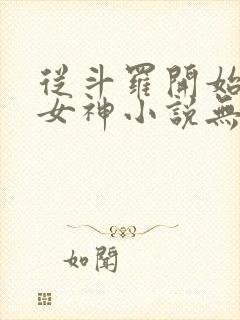 從斗羅開始
女神小說無
如聞